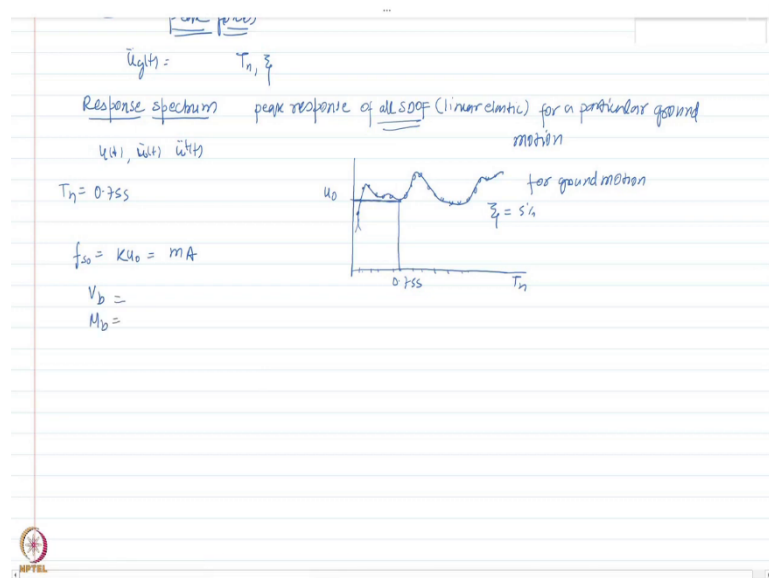 peak forces
üg(t) = Tn, ξ
Response spectrum peak response of all SDOF (linear elastic) for a particular ground
motion
u(t), u̇(t) üᵗ(t)
Tn = 0.75s
u₀
for ground motion
ξ = 5%
0.75s
Tn
fs₀ = Ku₀ = mA
Vb =
Mb =
NPTEL